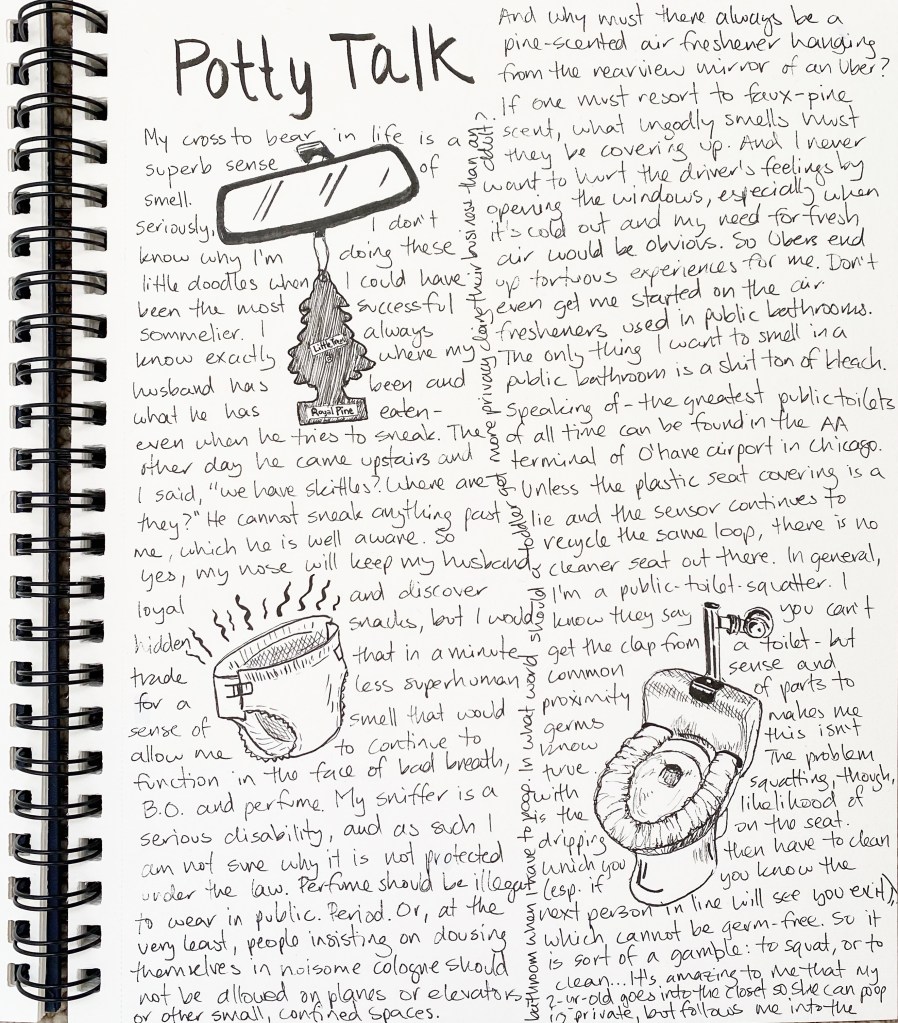 Potty Talk
My cross to bear in life is a
superb sense of
smell.
Seriously, I don't
know why I'm doing these
little doodles when I could have
been the most successful
sommelier. I always
know exactly where my
husband has been and
what he has eaten-
even when he tries to sneak. The
other day he came upstairs and
I said, "we have skittles? Where are
they?" He cannot sneak anything past
me, which he is well aware. So
yes, my nose will keep my husband
loyal and discover
hidden snacks, but I would
trade that in a minute
for a less superhuman
sense of smell that would
allow me to continue to
function in the face of bad breath,
B.O. and perfume. My sniffer is a
serious disability, and as such I
am not sure why it is not protected
under the law. Perfume should be illegal
to wear in public. Period. Or, at the
very least, people insisting on dousing
themselves in noisome cologne should
not be allowed on planes or elevators
or other small, confined spaces.
Little Trees
Royal Pine
And why must there always be a
pine-scented air freshener hanging
from the rearview mirror of an Uber?
If one must resort to faux-pine
scent, what ungodly smells must
they be covering up. And I never
want to hurt the driver's feelings by
opening the windows, especially when
it's cold out and my need for fresh
air would be obvious. So Ubers end
up tortuous experiences for me. Don't
even get me started on the air
fresheners used in public bathrooms.
The only thing I want to smell in a
public bathroom is a shit ton of bleach.
Speaking of - the greatest public toilets
of all time can be found in the AA
terminal of O'hare airport in Chicago.
Unless the plastic seat covering is a
lie and the sensor continues to
recycle the same loop, there is no
cleaner seat out there. In general,
I'm a public-toilet-squatter. I
know they say you can't
get the clap from a toilet - but
common sense and
proximity of parts to
germs makes me
know this isn't
true. The problem
with squatting, though,
is the likelihood of
dripping on the seat.
which you then have to clean
(esp. if you know the
next person in line will see you exit),
which cannot be germ-free. So it
is sort of a gamble: to squat, or to
clean... It's amazing to me that my
2-yr-old goes into the closet so she can poop
in private, but follows me into the
bathroom when I have to poop. In what world should a toddler get more privacy doing their business than an
adult?